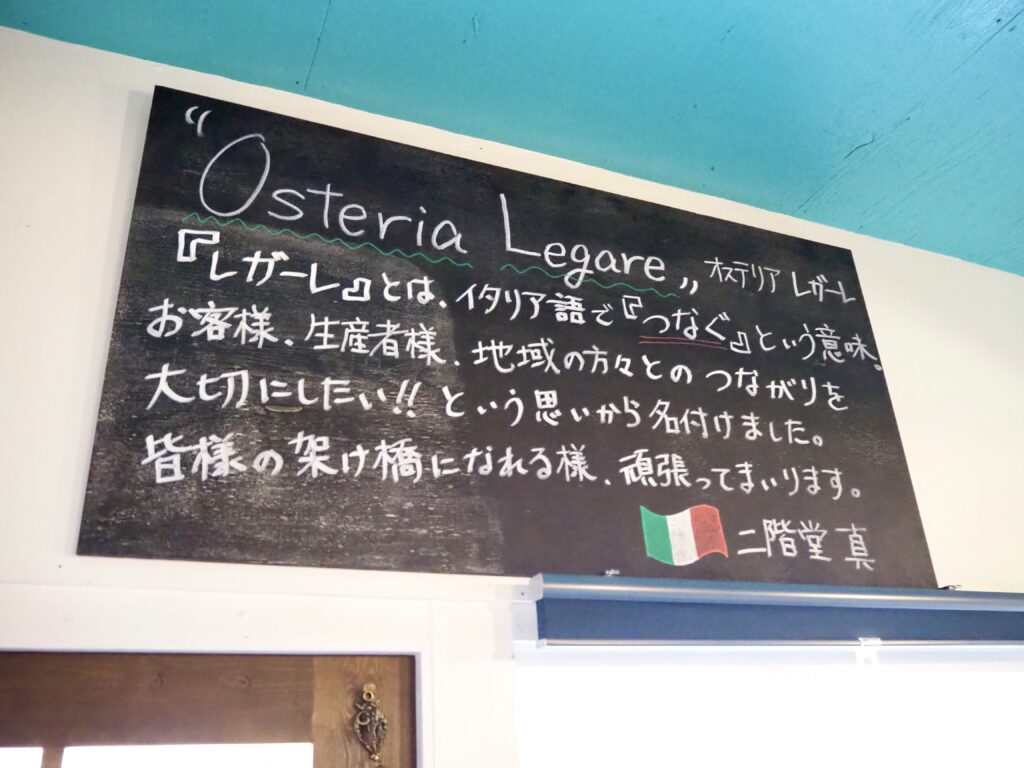 “Osteria Legare„ オステリア レガーレ
『レガーレ』とは、イタリア語で『つなぐ』という意味。
お客様、生産者様、地域の方々とのつながりを
大切にしたい!! という思いから名付けました。
皆様の架け橋になれる様、頑張ってまいります。
二階堂 真